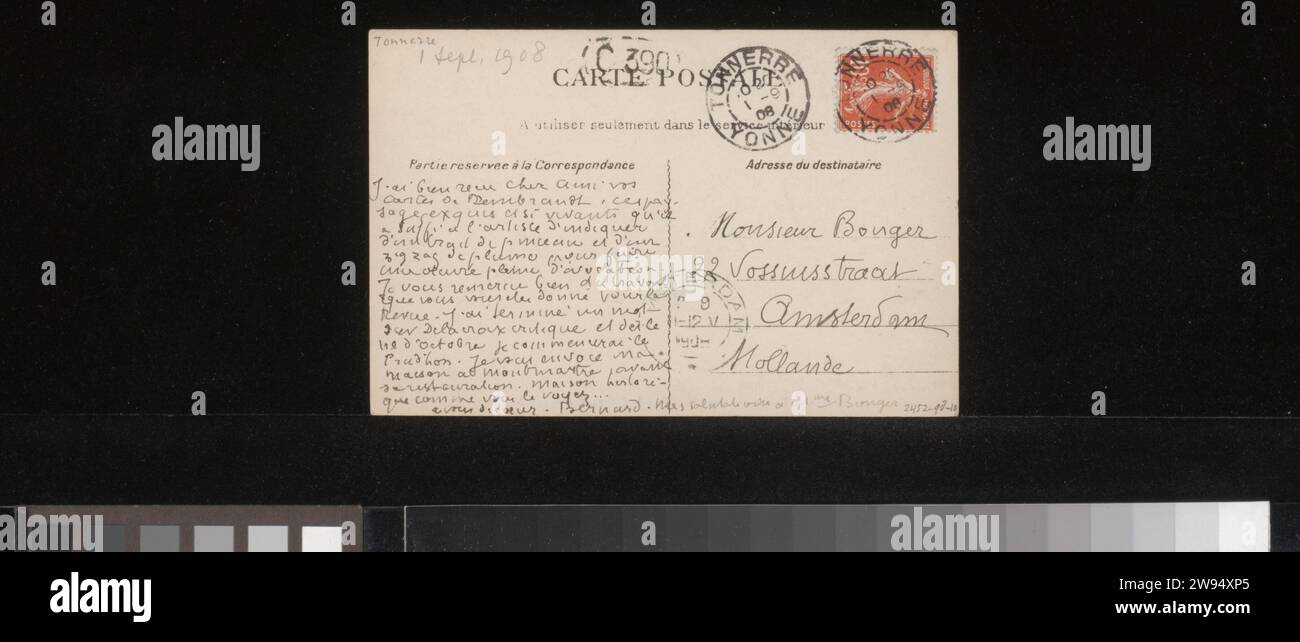 Tonnerre
1 Sept. 1908
C 390
CARTE POSTALE
TONNERRE
YONNE
1 - 9
08
TONNERRE
YONNE
08
POSTES
A utiliser seulement dans le service intérieur
Partie reservée à la Correspondance
J'ai bien reçu cher ami vos
cartes de Rembrandt, ces pay-
sages exquis et si vivants qu'il
a suffi à l'artiste d'indiquer
d'un trait de pinceau et d'un
zigzag de plume pour faire
une œuvre pleine d'évocation
Je vous remercie bien de
que vous donné pour la
Revue. J'ai terminé un mot
sur Delacroix critique et dès le
n° d'octobre je commencerai le
Prudhon. Je vous envoie
maison à Montmartre, avant
sa restauration. maison histori-
que comme vous le voyez...
à vous de cœur. Bernard. Mes salutations à Mme Bonger
Adresse du destinataire
Monsieur Bonger
Vossiusstraat
Amsterdam
Hollande
AMSTERDAM
9
-12 V
2452-98-10
alamy
Image ID: 2W94XP5
www.alamy.com